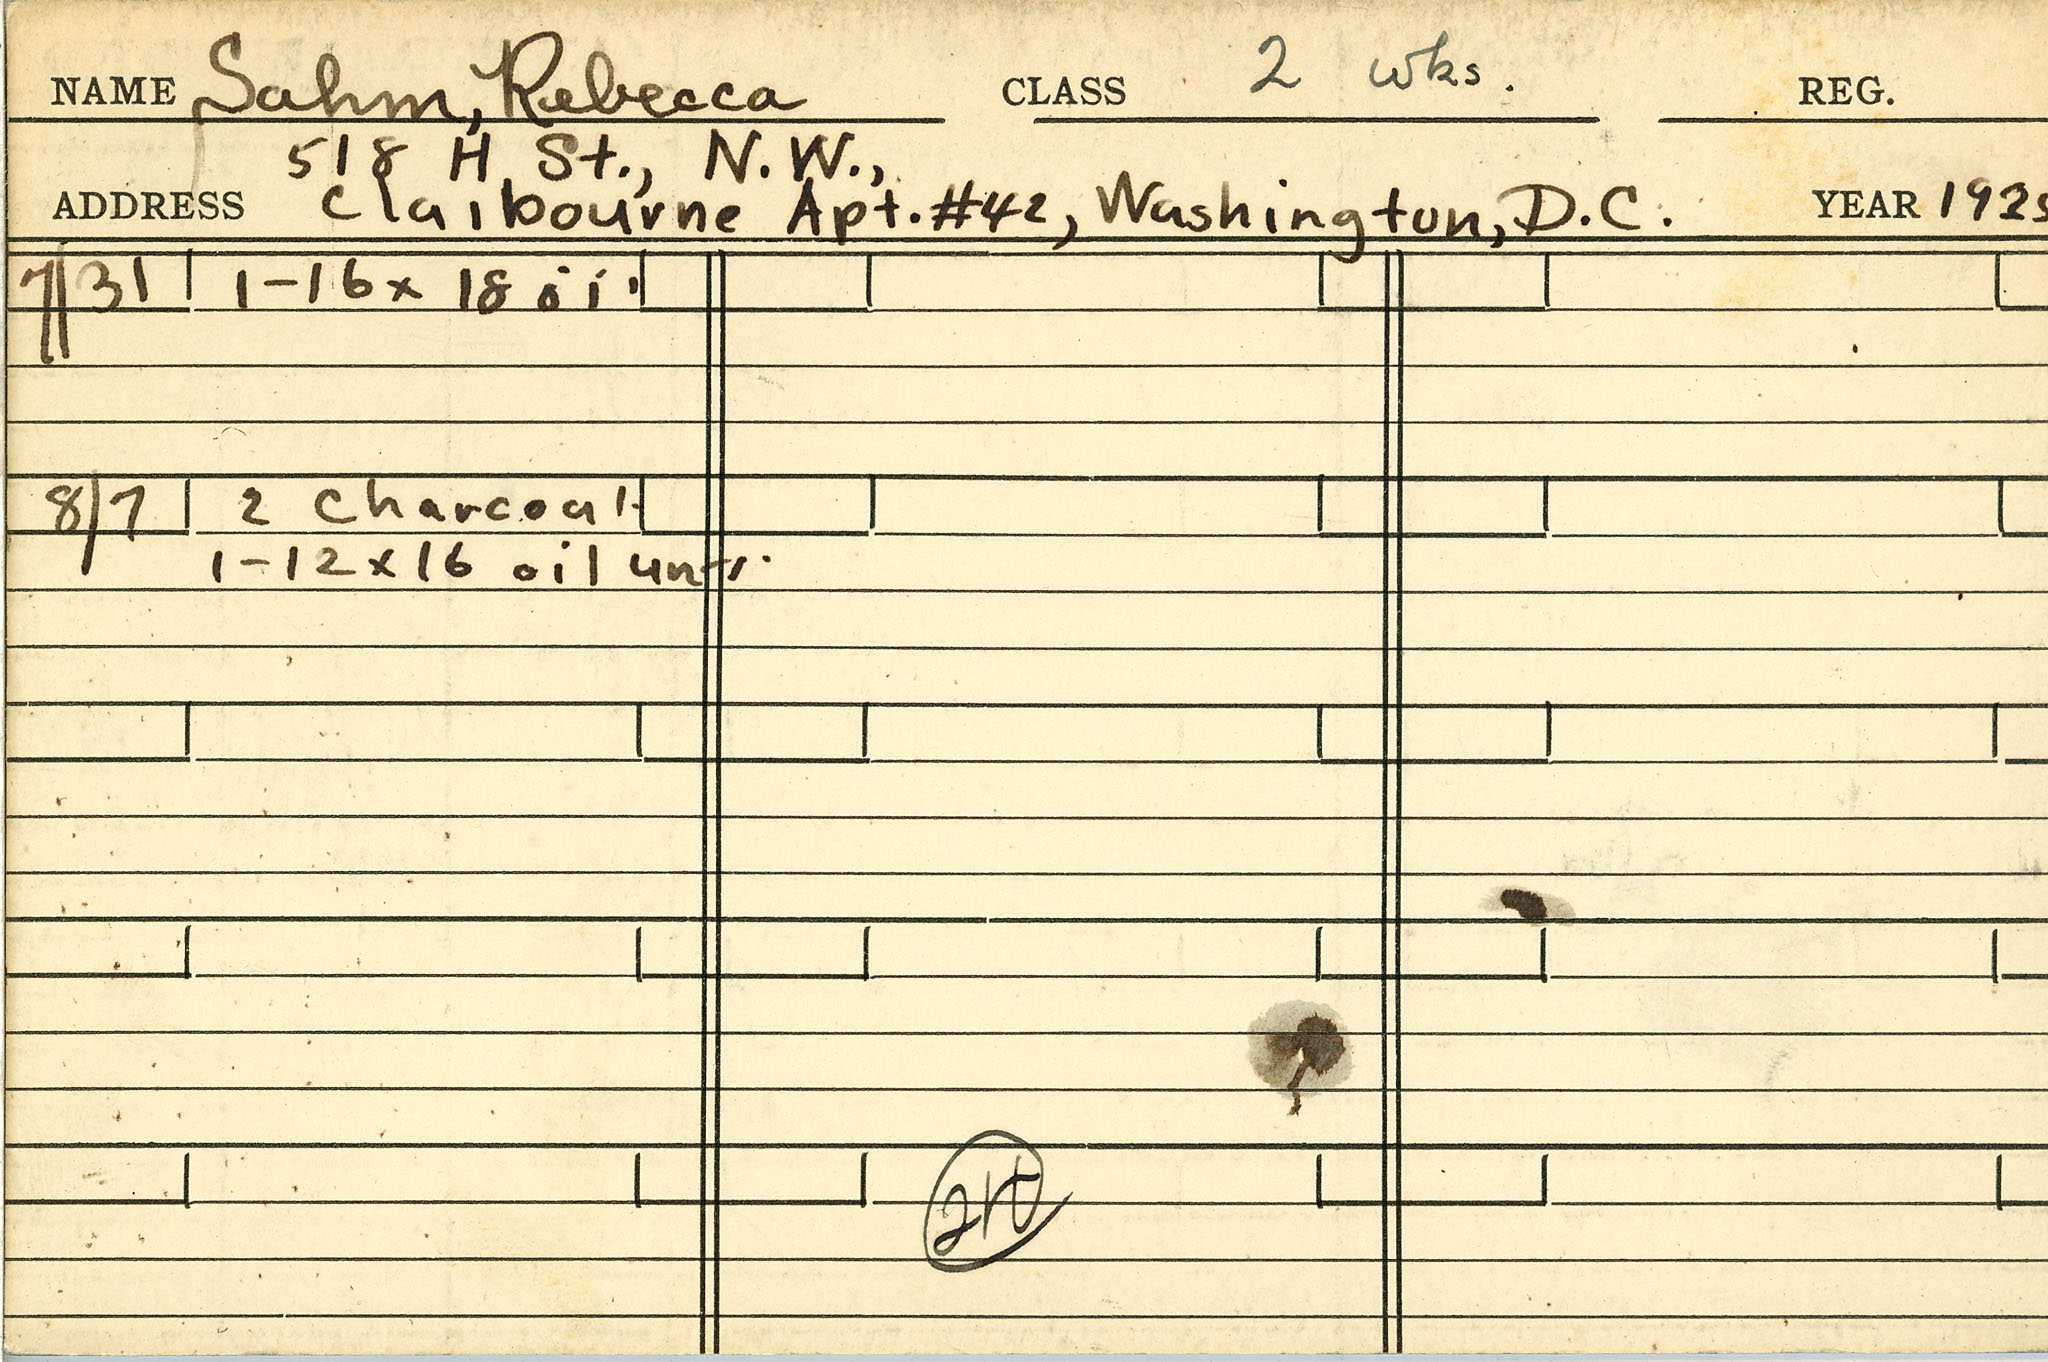 NAME Sahm, Rebecca CLASS 2 wks. REG.
518 H St., N.W.,
ADDRESS Claibourne Apt. #42, Washington, D.C. YEAR 1925
7/31 1-16 x 18 oil
8/7 2 Charcoal
1-12 x 16 oil